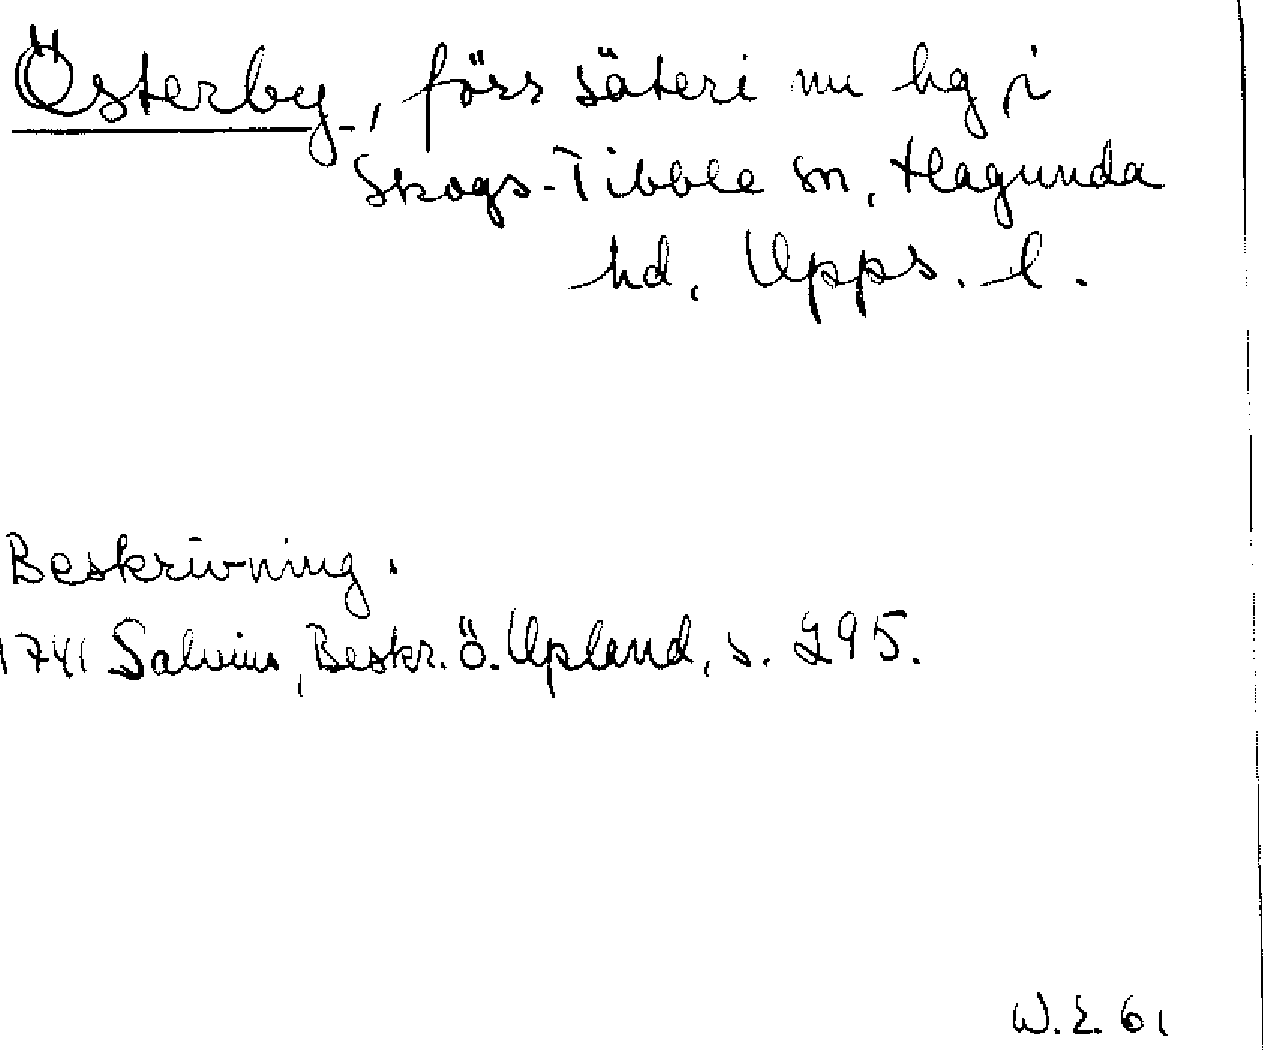 Österby, förr säteri nu hg i
Skogs-Tibble sn, Hagunda
hd, Upps. l.
Beskrivning.
1741 Salvius, Beskr. ö. Upland, s. 295.
W. E. 61